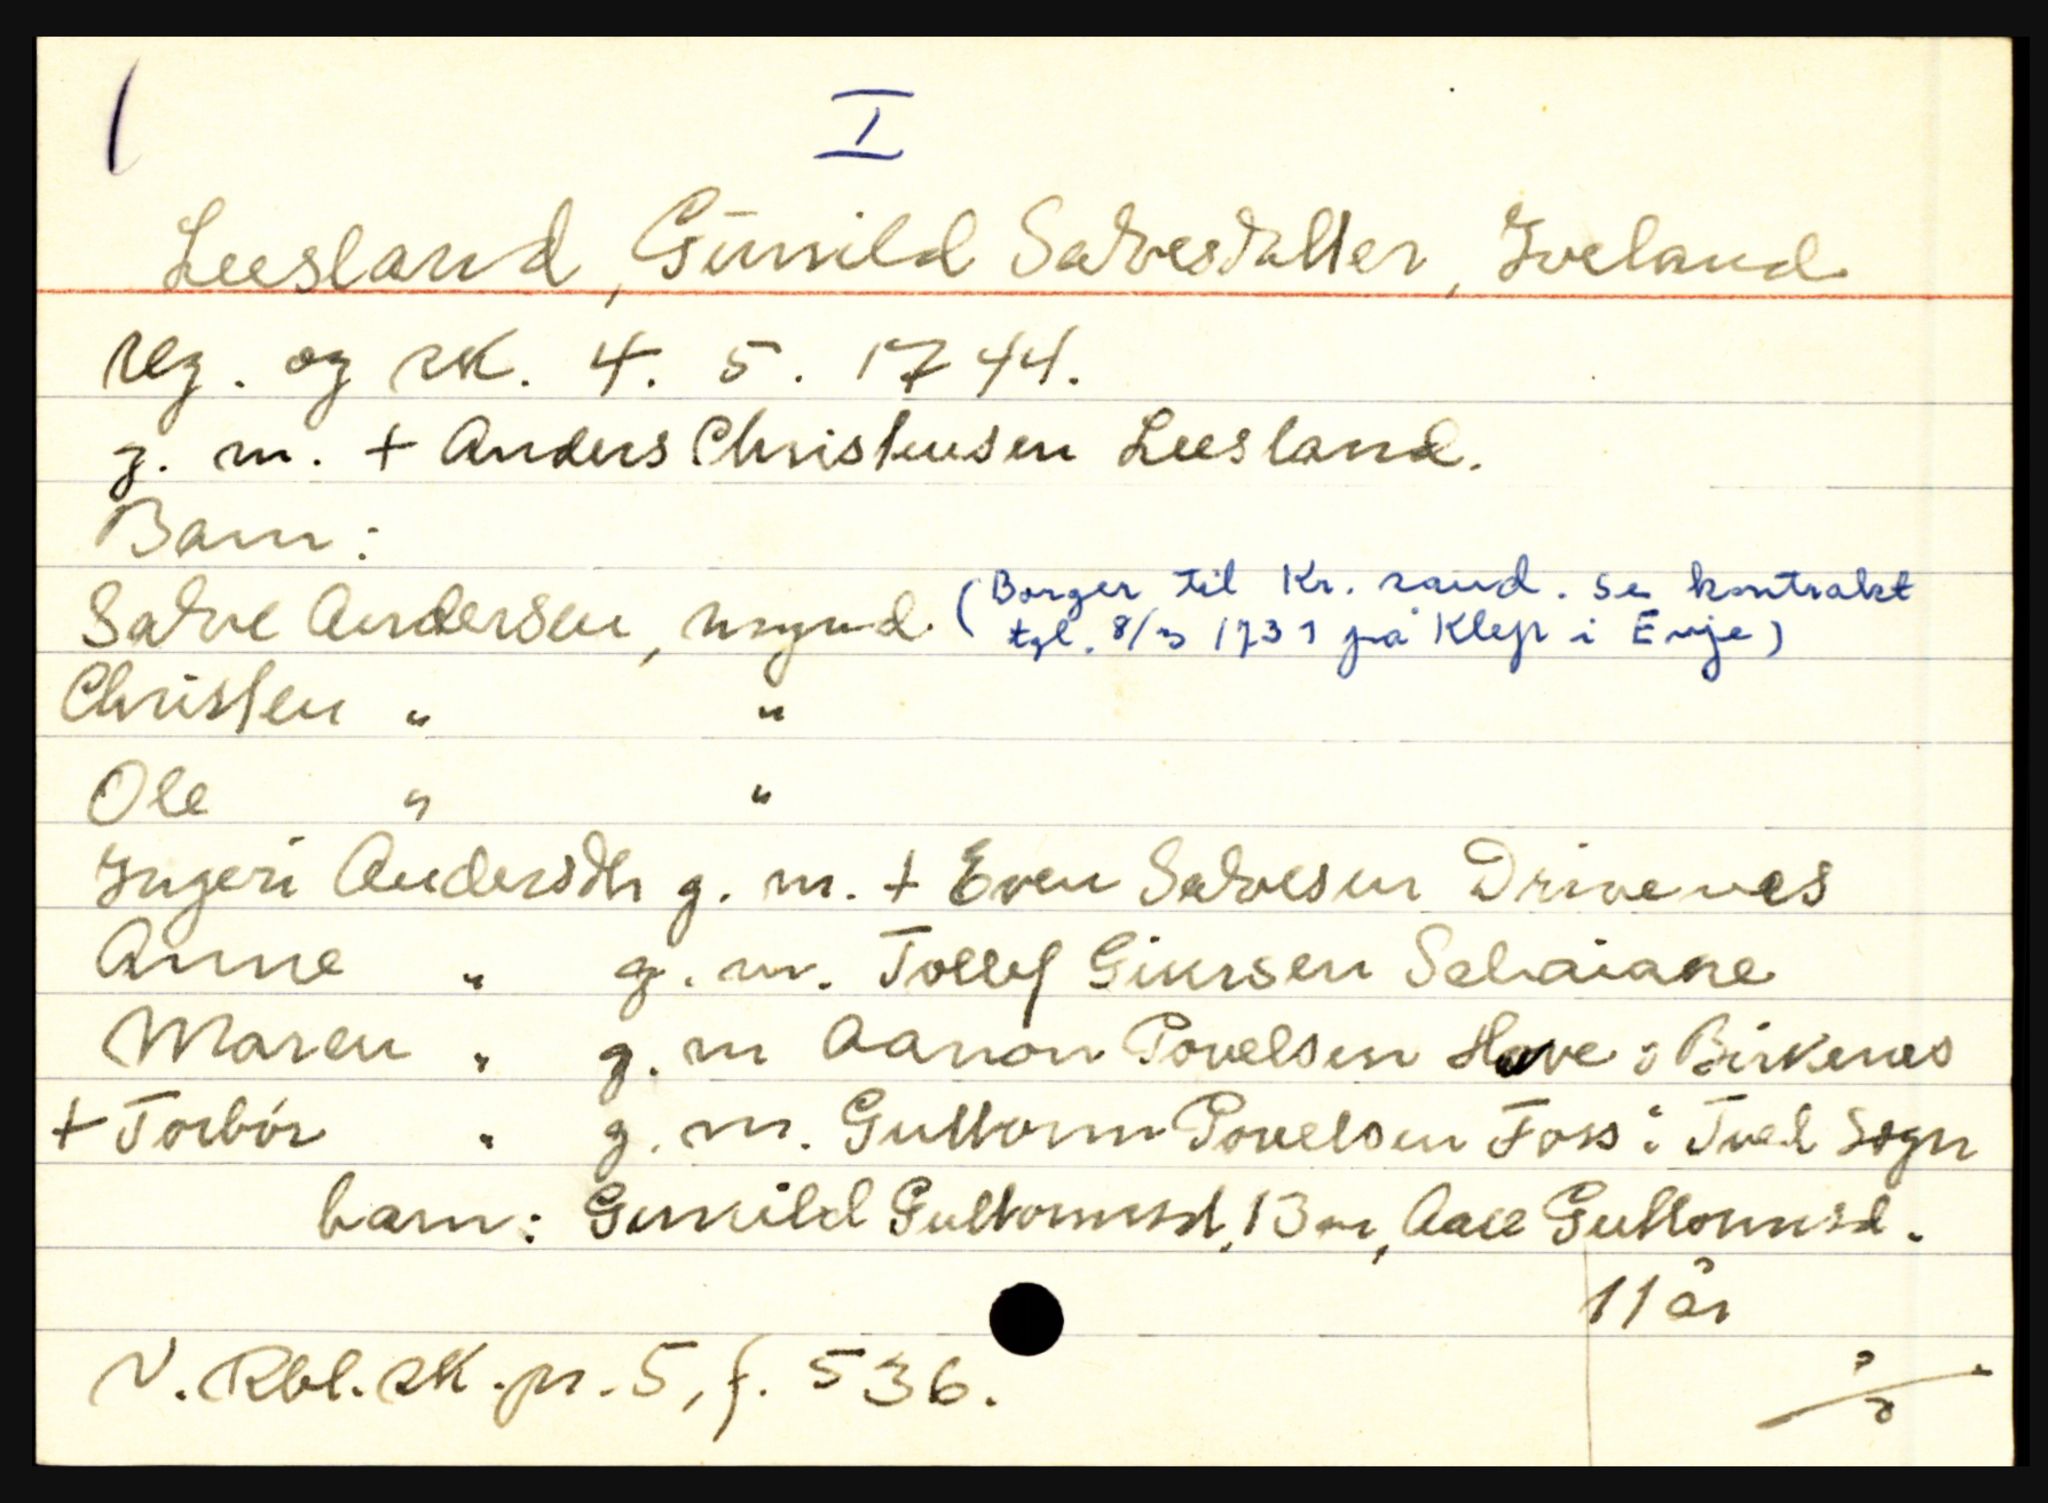 I
Leesland, Gunild Salvesdatter, Iveland
reg. og sk. 4. 5. 1744.
g. m. + Anders Christensen Leesland.
Barn:
Salve Andersen, mynd. (Borger til Kr. sand. se kontrakt
tgl. 8/3 1731 på Klep i Evje)
Christen " "
Ole " "
Ingeri Andersdtr g. m. + Even Salvesen Drivenes
Anne " g. m. Tollef Giursen
Maren " g. m Aanon Povelsen Hove i Birkenes
+ Torbór " g. m. Guttorm Povelsen Foss i Tved Sogn
barn: Gunild Guttormsd, 13 år, Aase Guttormsd.
11 år
N. Rbl. sk. pr. 5, f. 536.